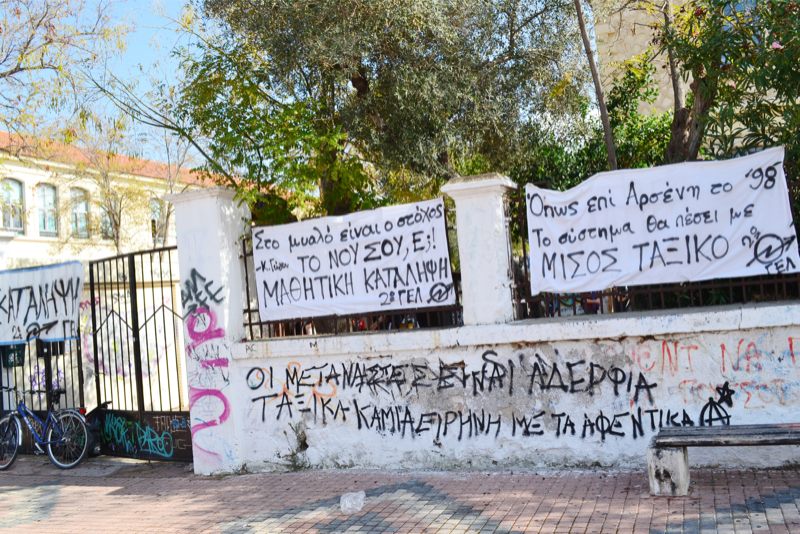 ΚΑΤΑΛΗΨΗ
2ο ΓΕΛ
Στο μυαλό είναι ο στόχος
-Κ. Γώγου ΤΟ ΝΟΥ ΣΟΥ, Ε;!
ΜΑΘΗΤΙΚΗ ΚΑΤΑΛΗΨΗ
2ο ΓΕΛ
Όπως επί Αρσένη το '98
Το σύστημα θα πέσει με
ΜΙΣΟΣ ΤΑΞΙΚΟ 2ο
ΓΕΛ
ΟΙ ΜΕΤΑΝΑΣΤΕΣ ΕΙΝΑΙ ΑΔΕΡΦΙΑ
ΤΑΞΙΚΑ-ΚΑΜΙΑ ΕΙΡΗΝΗ ΜΕ ΤΑ ΑΦΕΝΤΙΚΑ